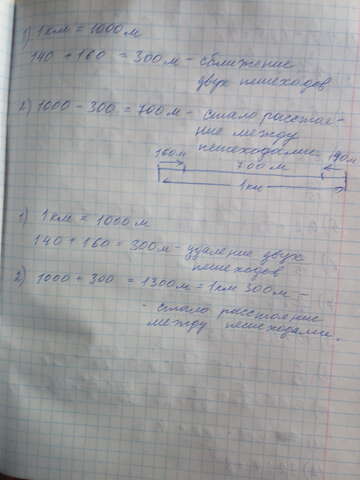 1) 1км = 1000м
140 + 160 = 300м - сближение
двух пешеходов
2) 1000 - 300 = 700м - стало расстоя-
ние между
пешеходами.
160м 700м 140м
1км
1) 1км = 1000м
140 + 160 = 300м - удаление двух
пешеходов
2) 1000 + 300 = 1300м = 1км 300м -
- стало расстояние
между пешеходами.